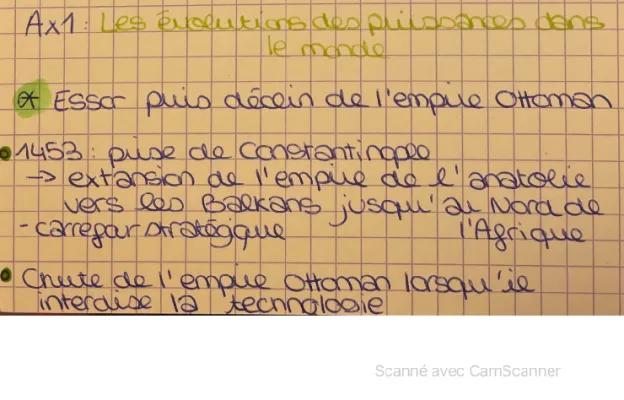 Ax1 : Les évolutions des puissances dans
le monde
Essor puis déclin de l'empire Ottoman
• 1453 : prise de Constantinople
→ extansion de l'empire de l'anatolie
vers les Balkans jusqu'au Nord de
- carrefour stratégique l'Afrique
• Chute de l'empire Ottoman lorsqu'il
interdise la technologie
Scanné avec CamScanner